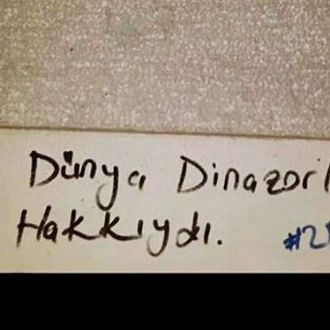 Dünya Dinazorl
Hakkıydı.